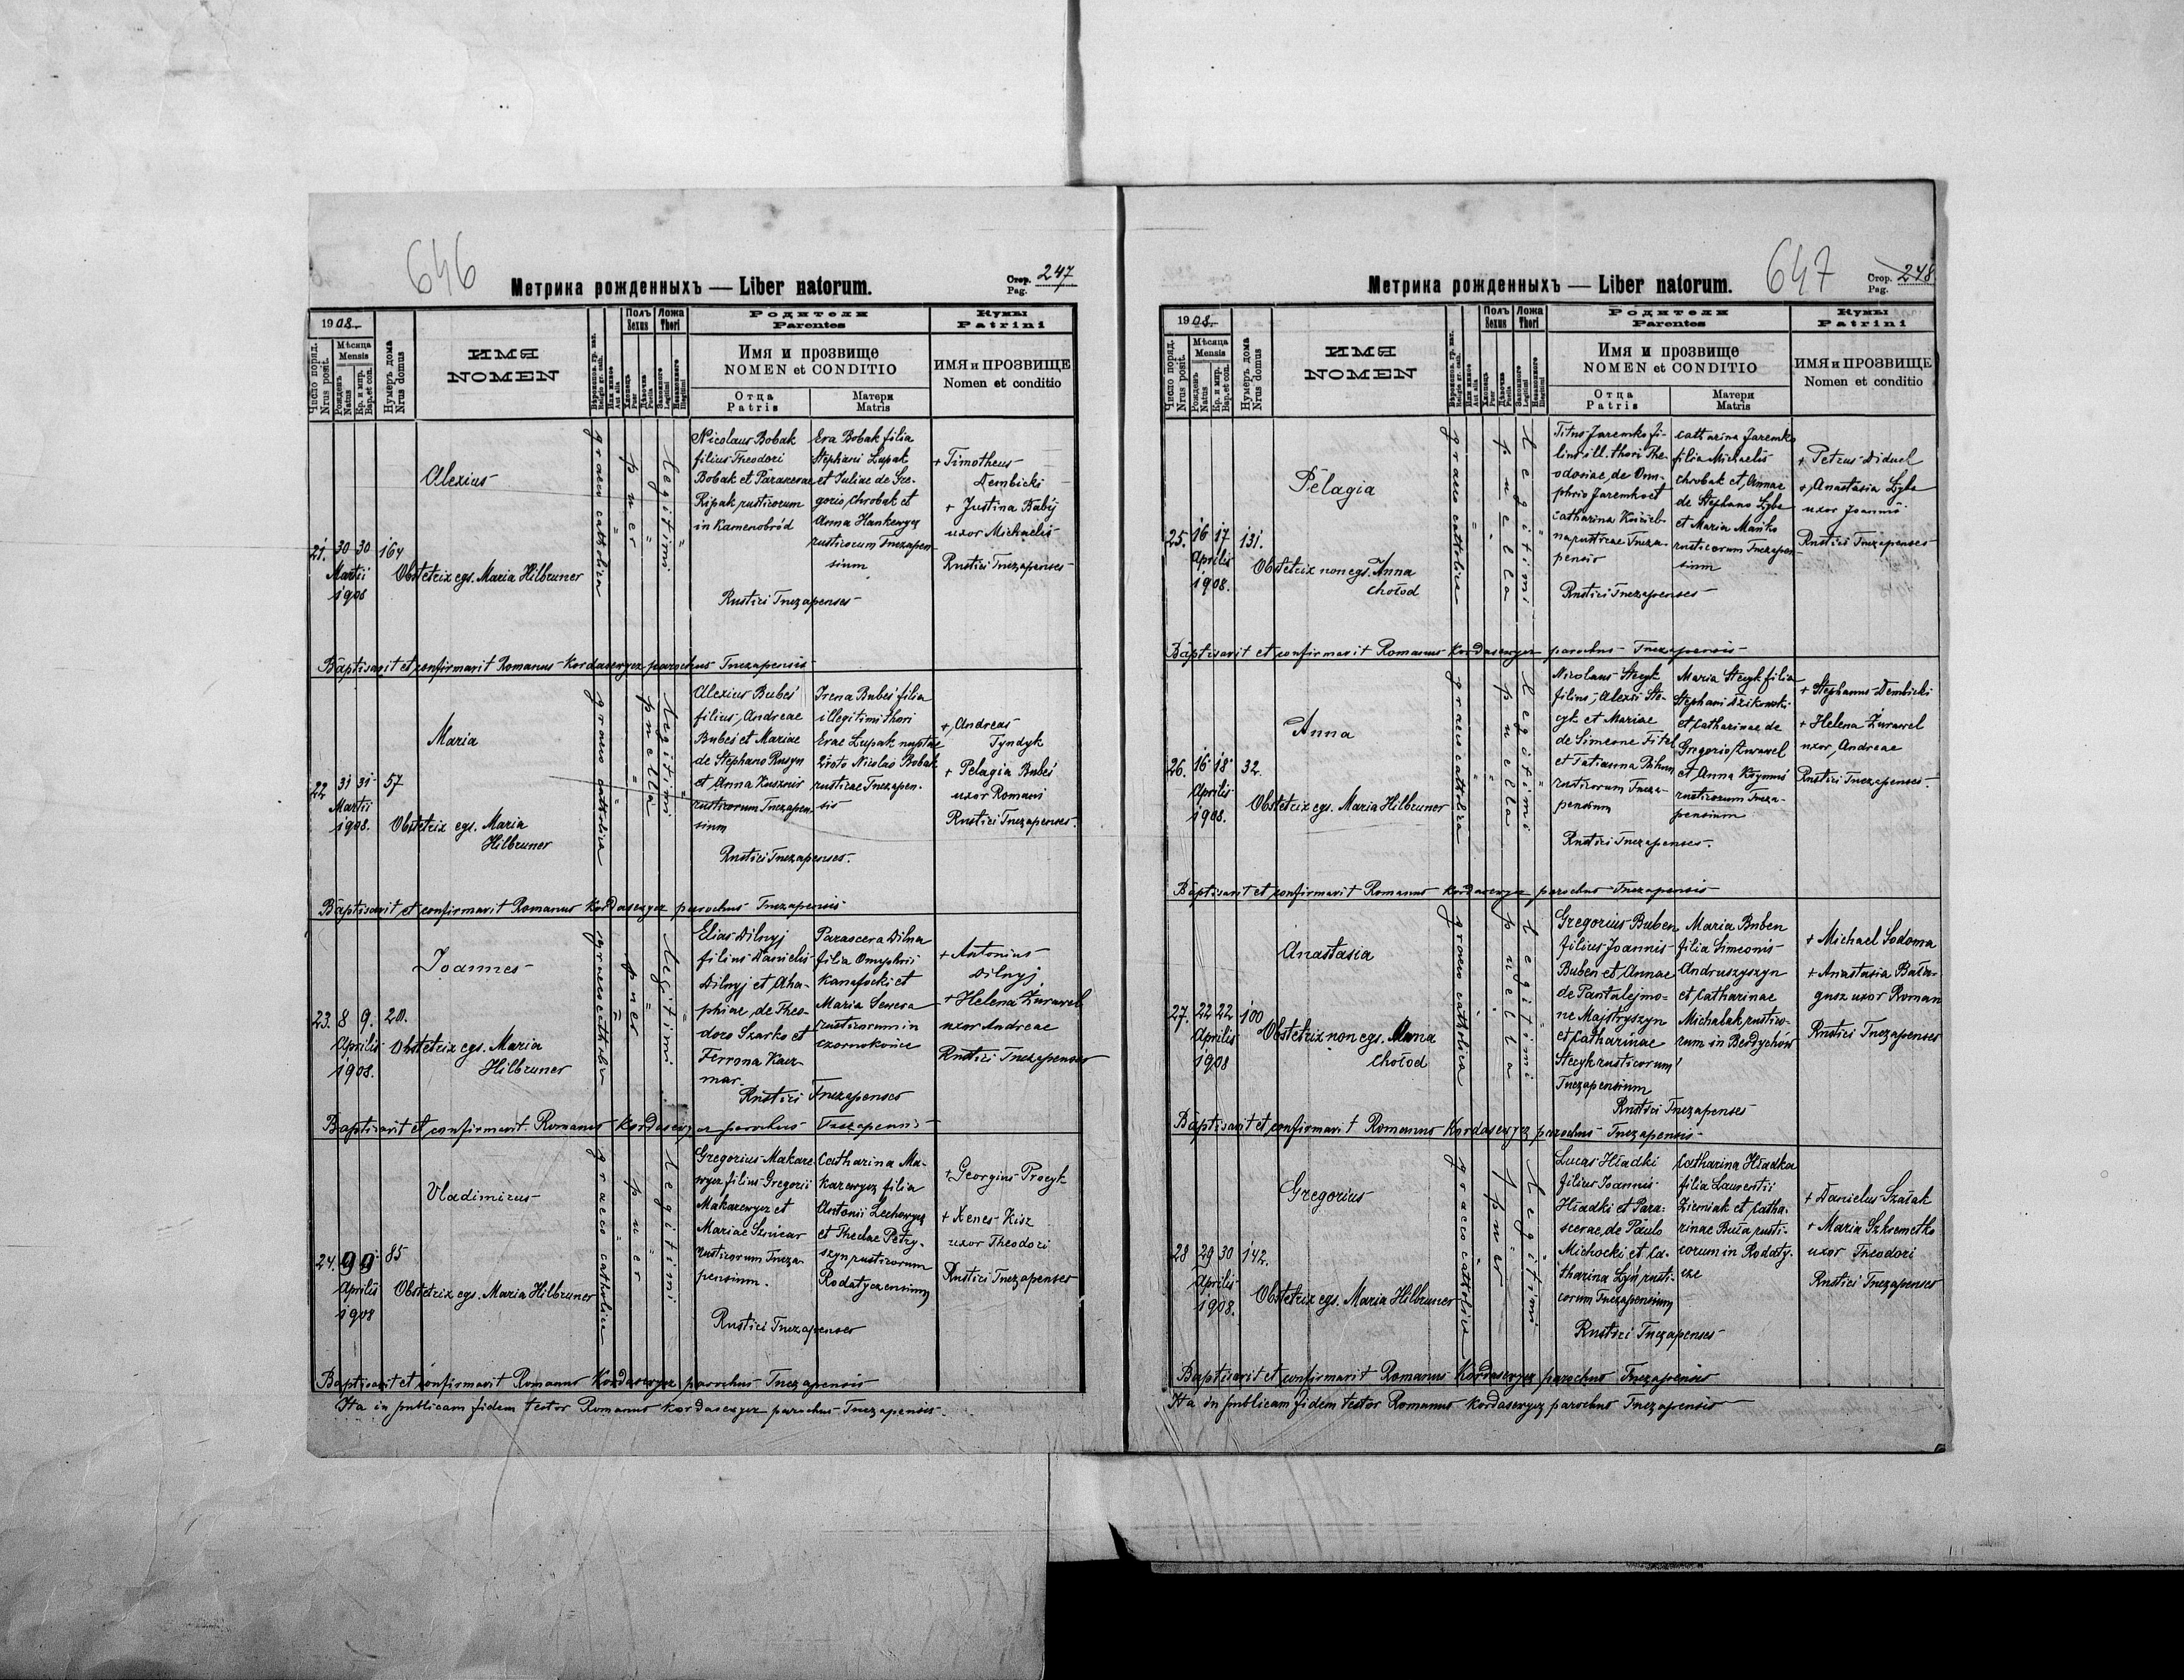 646
Метрика рожденныхъ — Liber natorum.
Стор. Pag. 247
1908
Число поряд. Nrus posit.
Мѣсяца Mensis
Рожденъ Natus
Кр. и мир. Bap. et con.
Нумеръ дома Nrus domus
ИМЯ
NOMEN
Полъ Sexus
Ложа Thori
Родители
Parentes
Имя и прозвище
NOMEN et CONDITIO
Отца Patris
Матери Matris
Кумы
Patrini
ИМЯ и ПРОЗВИЩЕ
Nomen et conditio
21. 30 30 164
Martii
1908
Alexius
Obstetrix egs. Maria Hilbruner
graeco catholica
puer
legitimi
Nicolaus Bobak
filius Theodori
Bobak et Parascevae
Ripak rusticorum
in Kamenobród
Eva Bobak filia
Stephani Lupak
et Juliae de Gre-
gorio Chrobak et
Anna Hankewycz
rusticorum Tuczapen-
sium
Rustici Tuczapenses
+ Timotheus
Dembicki
+ Justina Babij
uxor Michaelis
Rustici Tuczapenses
Baptisavit et confirmavit Romanus Kordasewycz parochus Tuczapensis
22 31 31 57
Martii
1908.
Maria
Obstetrix egs. Maria
Hilbruner
graeco catholica
puella
legitimi
Alexius Bubeś
filius Andreae
Bubeś et Mariae
de Stephano Rusyn
et Anna Kusznir
rusticorum Tuczapen-
sium
Irena Bubeś filia
illegitimi thori
Evae Lupak nuptae
Nicolao Bobak
rusticae Tuczapen-
sis
Rustici Tuczapenses.
+ Andreas
Tyndyk
+ Pelagia Bubeś
uxor Romani
Rustici Tuczapenses.
Baptisavit et confirmavit Romanus Kordasewycz parochus Tuczapensis
23. 8 9. 20.
Aprilis
1908.
Joannes
Obstetrix egs. Maria
Hilbruner
graeco cathol.
puer
legitimi
Elias Dilnyj
filius Danielis
Dilnyj et Aha-
phiae de Theo-
doro Szarko et
Ferrona Kacz-
mar.
Parasceva Dilna
filia Onuphrii
Kanafocki et
Maria Sewera
rusticorum in
Czornokońce
Rustici Tuczapenses
+ Antonius
Dilnyj
+ Helena Żurawel
uxor Andreae
Rustici Tuczapenses
Baptisavit et confirmavit Romanus Kordasewycz parochus Tuczapensis
24. 9 9 85
Aprilis
1908
Vladimirus
Obstetrix egs. Maria Hilbruner
graeco catholica
puer
legitimi
Gregorius Makare-
wycz filius Gregorii
Makarewycz et
Mariae Szwear
rusticorum Tucza-
pensium.
Catharina Ma-
karewycz filia
Antonii Lechowycz
et Theclae Petry-
szyn rusticorum
Rodatyczensium
Rustici Tuczapenses
+ Georgius Procyk
+ Xenes Kisz
uxor Theodori
Rustici Tuczapenses
Baptisavit et confirmavit Romanus Kordasewycz parochus Tuczapensis
Ita in publicam fidem testor Romanus Kordasewycz parochus Tuczapensis.
647
Метрика рожденныхъ — Liber natorum.
Стор. Pag. 248
1908
Число поряд. Nrus posit.
Мѣсяца Mensis
Рожденъ Natus
Кр. и мир. Bap. et con.
Нумеръ дома Nrus domus
ИМЯ
NOMEN
Полъ Sexus
Ложа Thori
Родители
Parentes
Имя и прозвище
NOMEN et CONDITIO
Отца Patris
Матери Matris
Кумы
Patrini
ИМЯ и ПРОЗВИЩЕ
Nomen et conditio
25. 16 17 131.
Aprilis
1908.
Pelagia
Obstetrix non egs. Anna
Chołod
graeco catholica
puella
legitimi
Titus Jaremko fi-
lius ill. thori The-
odosiae, de Onu-
phrio Jaremko et
Catharina
rusticae Tucza-
pensis
Catharina Jaremko
filia Michaelis
Chrobak et Annae
de Stephano Lyba
et Maria Mańko
rusticorum Tuczapen-
sium
Rustici Tuczapenses
+ Petrus Diduch
+ Anastasia Lyba
uxor Joannis
Rustici Tuczapenses
Baptisavit et confirmavit Romanus Kordasewycz parochus Tuczapensis
26. 16 18 32.
Aprilis
1908.
Anna
Obstetrix egs. Maria Hilbruner
graeco catholica
puella
legitimi
Nicolaus Stecyk
filius Alexii Ste-
cyk et Mariae
de Simeone Fitel
et Tatianna Rihun
rusticorum Tucza-
pensium
Maria Stecyk filia
Stephani Dzikowski
et Catharinae de
Gregorio Żurawel
et Anna
rusticorum Tucza-
pensium
Rustici Tuczapenses.
+ Stephanus Dembicki
+ Helena Żurawel
uxor Andreae
Rustici Tuczapenses.
Baptisavit et confirmavit Romanus Kordasewycz parochus Tuczapensis
27. 22 22 100
Aprilis
1908
Anastasia
Obstetrix non egs. Anna
Chołod
graeco catholica
puella
legitimi
Gregorius Buben
filius Joannis
Buben et Annae
de Pantalejmo-
ne Majstryszyn
et Catharinae
Stecyk rusticorum
Tuczapensium
Maria Buben
filia Simeonis
Andruszyszyn
et Catharinae
Michalak rustico-
rum in Berdychów
Rustici Tuczapenses
+ Michael Sodoma
+ Anastasia Bała-
gusz uxor Roman
Rustici Tuczapenses
Baptisavit et confirmavit Romanus Kordasewycz parochus Tuczapensis
28 29 30 142.
Aprilis
1908.
Gregorius
Obstetrix egs. Maria Hilbruner
graeco catholica
puer
legitimi
Lucas Hładki
filius Joannis
Hładki et Para-
scevae, de Paulo
Michocki et Ca-
tharina Łyń rusti-
corum Tuczapensium
Catharina Hładka
filia Laurentii
Ziemiak et Catha-
rinae Buła rusti-
corum in Rodaty-
cze
Rustici Tuczapenses
+ Danielus Szałak
+ Maria Szkremetko
uxor Theodori
Rustici Tuczapenses
Baptisavit et confirmavit Romanus Kordasewycz parochus Tuczapensis
Ita in publicam fidem testor Romanus Kordasewycz parochus Tuczapensis